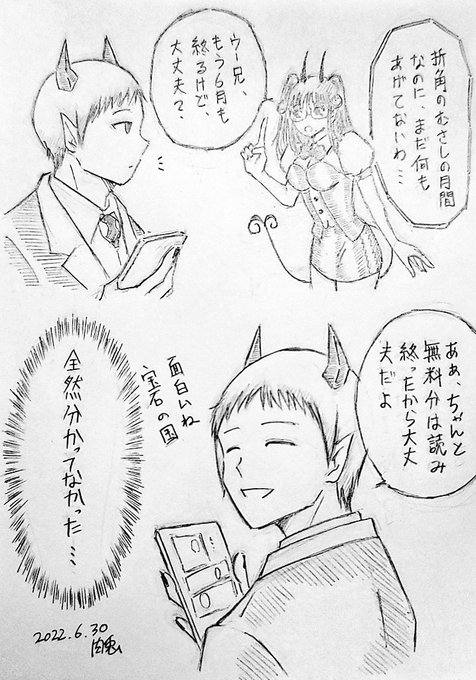 折角のむさしの月間
なのに、まだ何も
あげてないわ…
ウー兄、
もう6月も
終るけど、
大丈夫？
あぁ、ちゃんと
無料分は読み
終ったから大丈
夫だよ
面白いね
宝石の国
全然分かってなかった…
2022.6.30